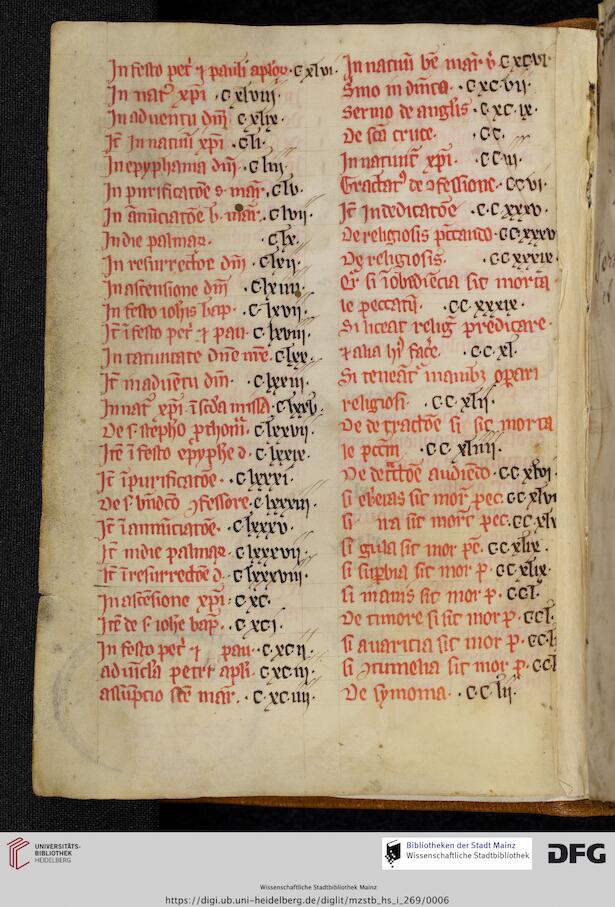 In festo pet̄ ⁊ pauli aplor̄ · C xlvi ·
In nat⁹ xp̄i · C xlviii ·
In aduentu dn̄i C xlix ·
It̄ In natiuī xp̄i · C li ·
In epyphania dn̄i · C liii ·
In purificatōe s. mar̄ · C lv ·
In ānūciatōe b. mar̄ · C lvii ·
In die palmar̄ · C lx ·
In resurrectōe dn̄i · C lxii ·
In ascensione dn̄i · C lxiiii ·
In festo ioh̄is bap̄ · C lxvii ·
It̄ ī festo pet̄ ⁊ pau · C lxviii ·
In natiuitate dn̄e nr̄e · C lxx ·
It̄ in aduētu dn̄i · C lxxiii ·
In nat̄ xp̄i · ī scd̄a missa · C lxxv ·
De s. stepħo p̄thom̄ · C lxxvii ·
Itē ī festo epyphē d · C lxxix ·
It̄ ī purificatōe · C lxxxi ·
De s. bn̄dc̄o ꝯfessore · C lxxxiii ·
It̄ ī annūciatōe · C lxxxv ·
It̄ in die palmar̄ · C lxxxvii ·
It̄ ī resurrectōe d · C lxxxviii ·
In ascēsione xp̄i · C xc ·
Itē de s. ioh̄e bap̄ · C xci ·
In festo pet̄ ⁊ pau · C xcii ·
ad vīcl̄a petri apl̄i · C xciii ·
assūpcio sc̄e mar̄ · C xciiii ·
In natiuī bē mar̄ v̄ C xcvi
Smo in dn̄ica · C xcvii ·
Sermo de anglis · C xc ix ·
De sc̄a cruce · CC ·
In natiuit̄ xp̄i · CC ii ·
Tractat⁹ de ꝯfessione · CC vi ·
It̄ In dedicatōe · CC xxxv ·
De religiosis · CC xxxix ·
Qr̄ si īobediēcia sit morta
le peccatū · CC xxxix ·
Si liceat religꝰ predicare ·
⁊ alia hꝰ facēe · CC xl ·
Si teneāt̄ manibꝫ opari
religiosi · CC xlii ·
De detractōe si sit morta
le pc̄cm̄ · CC xliiii ·
De detc̄tōe audiēdo · CC xlvi ·
si ebetas sit mor̄ pec · CC xlvi
si ira sit mor̄ pec · CC xlv
si gula sit mor pē · CC xlix ·
si supbia sit mor p · CC xlix ·
si inanis sit mor p · CC l ·
De timore si sit mor p · CC l ·
si auaricia sit mor p · CC l
si ꝯtumelia sit mor p · CC l
De symonia · CC lii ·
UNIVERSITÄTS-
BIBLIOTHEK
HEIDELBERG
Bibliotheken der Stadt Mainz
Wissenschaftliche Stadtbibliothek
DFG
Wissenschaftliche Stadtbibliothek Mainz
https://digi.ub.uni-heidelberg.de/diglit/mzstb_hs_i_269/0006